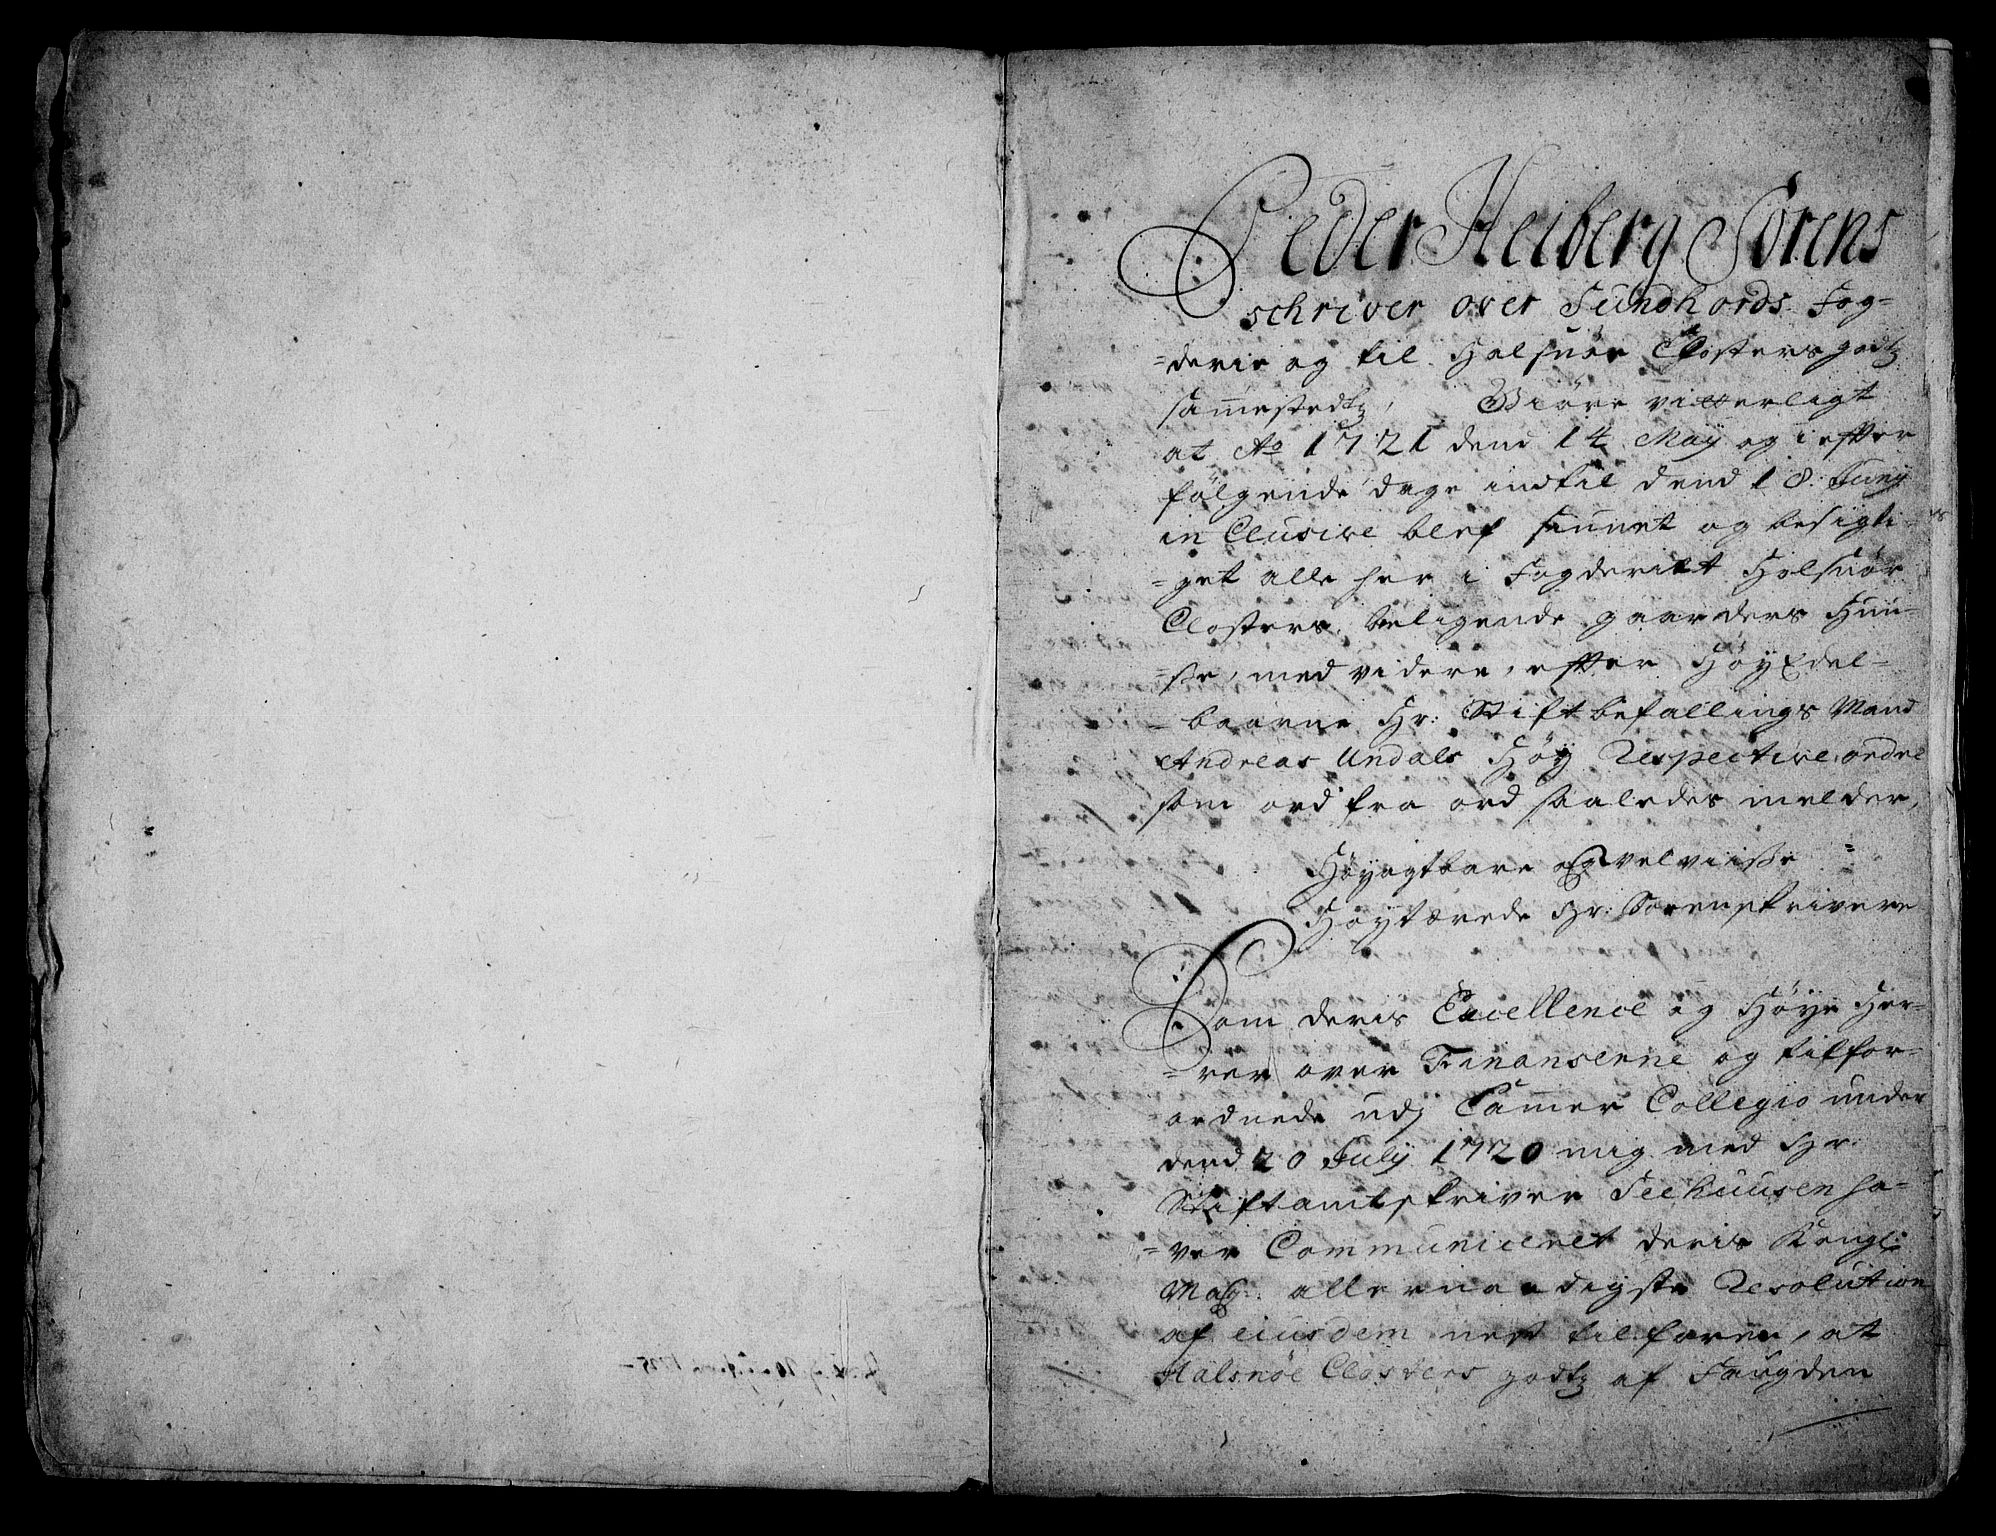 Peder Heiberg Sorens
schriver over Sundhords Fog-
=derie og til Halsnöe Closters godtz
sammestedtz, Giöre vitterligt
at Ao 1721 dend 14 Maÿ og i efter
følgende dage indtil dend 18. Junÿ
in Clusive blef siunet og besigti-
=get alle her i Fogderiet Halsnöe
Closters beligende gaarders Huu-
=se, med videre, efter HøyEdel-
=baarne Hr: Stiftbefallings Mand
Andreas Undals Høÿ Respective ordre
som ord fra ord saaledes melder,
Høyagtbare og velviise
Høytærede Hr: Sorenskrivere
Som deris Excellence og Høye Her-
=rer over Finanserne og tilfor-
ordnede udj Cammer Collegio under
dend 20 Julÿ 1720 mig med Hr:
Stiftamtskriver Seehuusen ha-
=ver Communiceret deris Kongl:
May: allernaadigste Resolution
af eiusdem nest tilforen, at
Halsnöe Closters godtz af Fougden